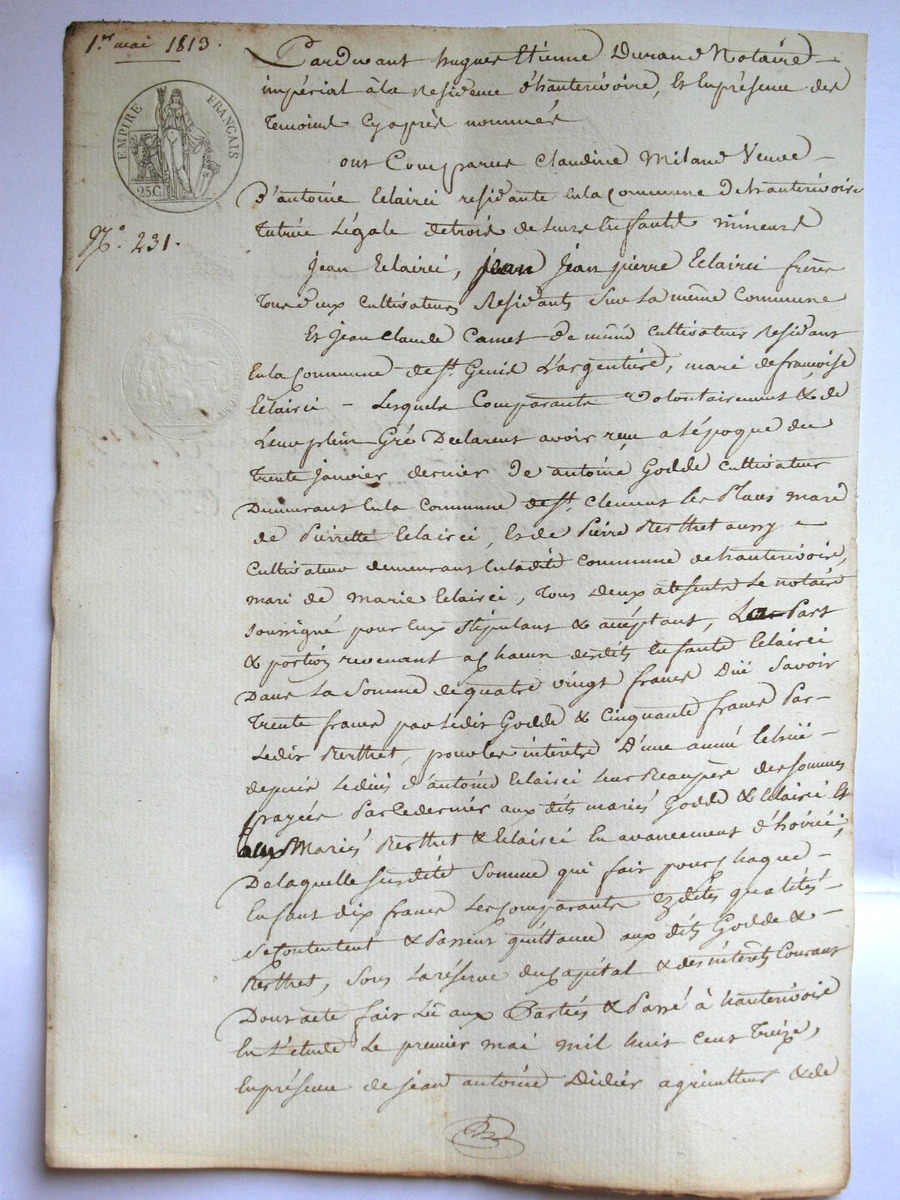 1.er mai 1813.
EMPIRE FRANÇAIS
25C
N.o 231.
Pardevant hugues Etienne Durand Notaire
impérial à la residence d'hauterivoire, et En présence des
Temoins Cyaprès nommés
ont Comparus Claudine Miland Veuve
d'antoine Eclairci residante En la Commune d'hauterivoire
Tutrice Légale de trois de leurs Enfants mineurs
Jean Eclairci, jean Jean pierre Eclairci frères
Tous deux Cultivateurs Residants Sur La même Commune
Et Jean Claude Camet de même Cultivateur residant
En la Commune de St. Genis L'argentière, mari de françoise
Eclairci - Lesquels Comparants Volontairement & de
Leur plein Gré Declarent avoir reçu a l'époque du
Trente Janvier dernier de antoine Godde Cultivateur
Demeurant En la Commune de St. Clement les Places mari
de Pierrette Eclairci, et de Pierre Berthet aussy
Cultivateur demeurant En la dite Commune d'hauterivoire,
mari de marie Eclairci, Tous deux absents Le notaire
soussigné pour Eux Stipulant & acceptant, La Part
& portion revenant a Chacun desdits Enfants Eclairci
Dans La Somme de quatre vingt francs Due Savoir
Trente francs par Ledit Godde & Cinquante francs Par
Ledit Berthet, pour les intérêts D'une année Echue
depuis Le décès d'antoine Eclairci Leur Beaupère des sommes
payées Par Ce dernier aux dits mariés Godde & Eclairci &
aux Mariés Berthet & Eclairci En avancement d'hoirie;
De laquelle susdite Somme qui fait pour Chaque
Enfant dix francs Les Comparants Ezdites qualités
se Contentent & Passent quittance aux dits Godde &
Berthet, Sous La réserve du Capital & des intérêts Courant
Dont acte fait Lû aux Parties & Passé à hauterivoire
En L'etude Le premier mai mil huit Cent Treize,
En présence de Jean antoine Didier agriculteur & de